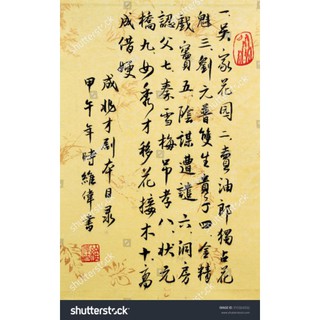 一吴家花园二賣油郎獨占花
魁三劉元普雙生貴子四金精
戲竇五陰謀遭譴六洞房
認父七秦雪梅吊孝八狀元
橋九女秀才移花接木十高
成借嫂
成兆才剧本目录
甲午年時維偉書
shutterstock
www.shutterstock.com